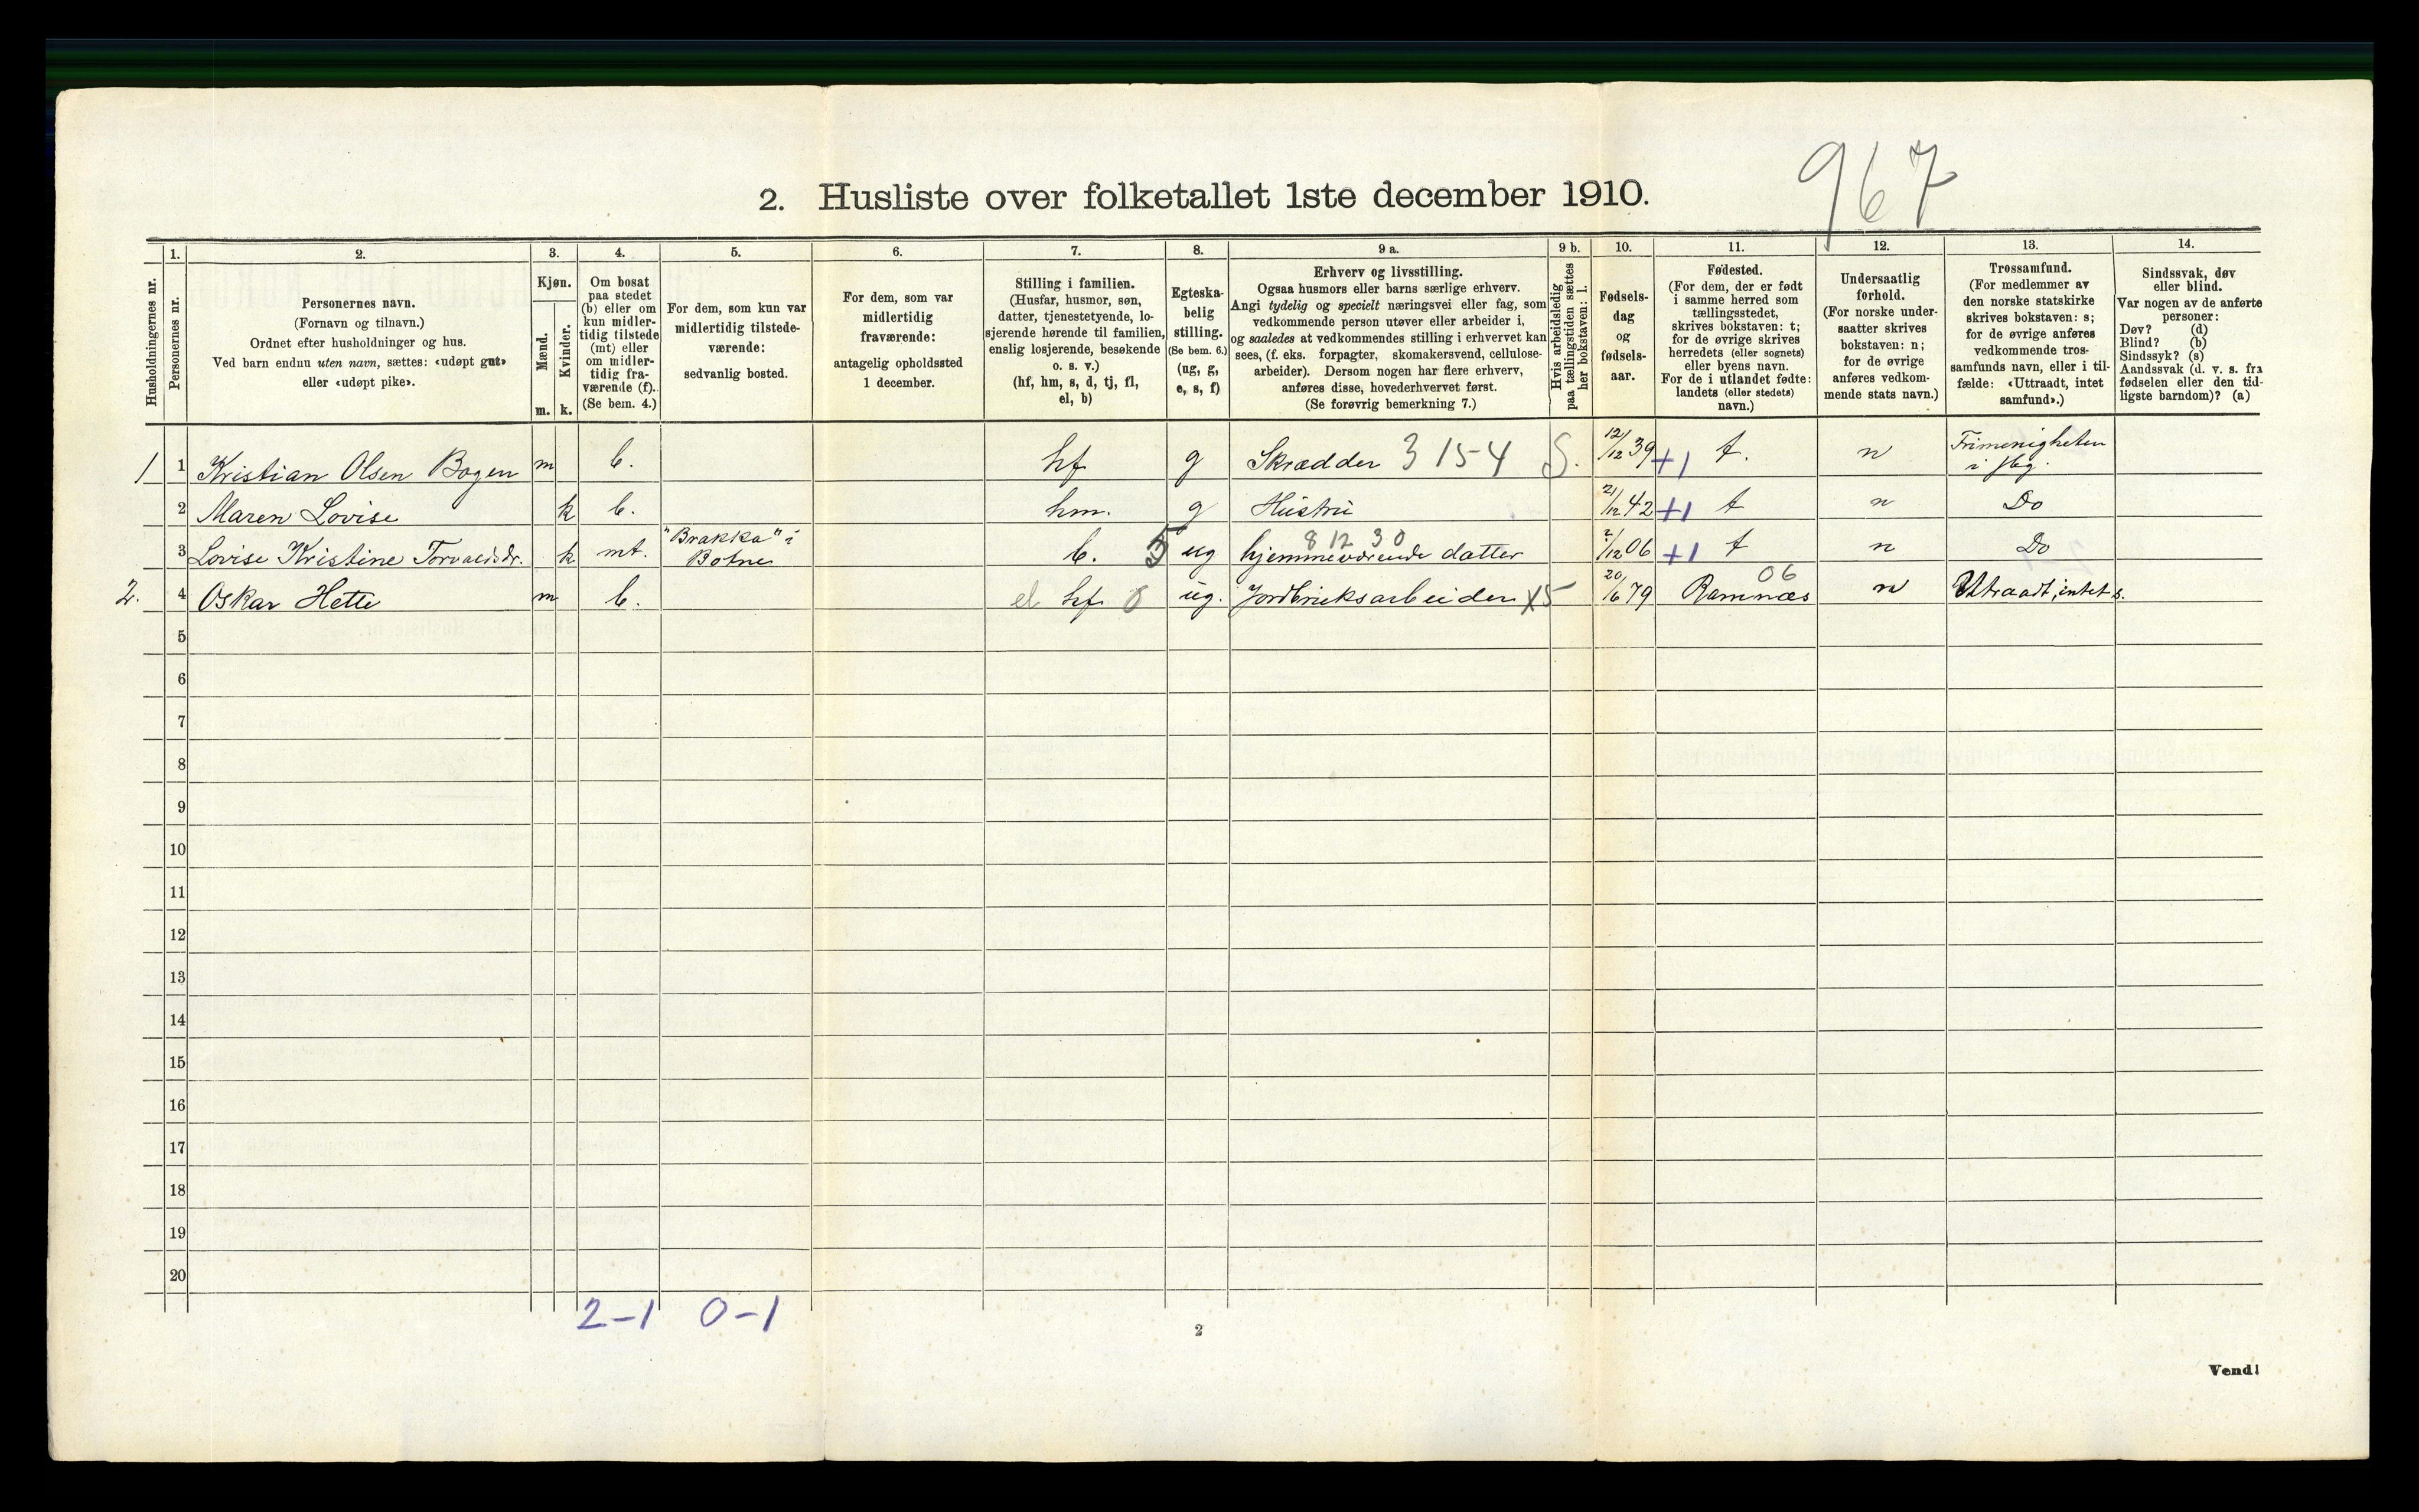 967
2. Husliste over folketallet 1ste december 1910.
Husholdningernes nr.
1.
Personernes nr.
2.
Personernes navn.
(Fornavn og tilnavn.)
Ordnet efter husholdninger og hus.
Ved barn endnu uten navn, sættes: «udøpt gut»
eller «udøpt pike».
3.
Kjøn.
Mænd.
Kvinder.
m. k.
4.
Om bosat
paa stedet
(b) eller om
kun midler-
tidig tilstede
(mt) eller
om midler-
tidig fra-
værende (f).
(Se bem. 4.)
5.
For dem, som kun var
midlertidig tilstede-
værende:
sedvanlig bosted.
6.
For dem, som var
midlertidig
fraværende:
antagelig opholdssted
1 december.
7.
Stilling i familien.
(Husfar, husmor, søn,
datter, tjenestetyende, lo-
sjerende hørende til familien,
enslig losjerende, besøkende
o. s. v.)
(hf, hm, s, d, tj, fl,
el, b)
8.
Egteska-
belig
stilling.
(Se bem. 6.)
(ug, g,
e, s, f)
9 a.
Erhverv og livsstilling.
Ogsaa husmors eller barns særlige erhverv.
Angi tydelig og specielt næringsvei eller fag, som
vedkommende person utøver eller arbeider i,
og saaledes at vedkommendes stilling i erhvervet kan
sees, (f. eks. forpagter, skomakersvend, cellulose-
arbeider). Dersom nogen har flere erhverv,
anføres disse, hovederhvervet først.
(Se forøvrig bemerkning 7.)
9 b.
Hvis arbeidsledig
paa tællingstiden sættes
her bokstaven: l.
10.
Fødsels-
dag
og
fødsels-
aar.
11.
Fødested.
(For dem, der er født
i samme herred som
tællingsstedet,
skrives bokstaven: t;
for de øvrige skrives
herredets (eller sognets)
eller byens navn.
For de i utlandet fødte:
landets (eller stedets)
navn.)
12.
Undersaatlig
forhold.
(For norske under-
saatter skrives
bokstaven: n;
for de øvrige
anføres vedkom-
mende stats navn.)
13.
Trossamfund.
(For medlemmer av
den norske statskirke
skrives bokstaven: s;
for de øvrige anføres
vedkommende tros-
samfunds navn, eller i til-
fælde: «Uttraadt, intet
samfund».)
14.
Sindssvak, døv
eller blind.
Var nogen av de anførte
personer:
Døv? (d)
Blind? (b)
Sindssyk? (s)
Aandssvak (d. v. s. fra
fødselen eller den tid-
ligste barndom)? (a)
1 1 Kristian Olsen Bogen m b. hf g Skrædder 3 15-4 S. 12/12 39 +1 t. n Frimenigheten
i Jbg.
2 Maren Lovise k b. hm. g Hustru 21/12 42 +1 t n Do
3 Lovise Kristine Torvaldsdr. k mt. "Brakka" i
Botne b. 5 ug hjemmeværende datter 8 12 30 /12 06 +1 t n Do
2. 4 Oskar Hette m b. el hf 0 ug. Jordbruksarbeider X5 20/6 79 Ramnæs 06 n Uttraadt, intet s.
5
6
7
8
9
10
11
12
13
14
15
16
17
18
19
20
2-1 0-1
2
Vend!